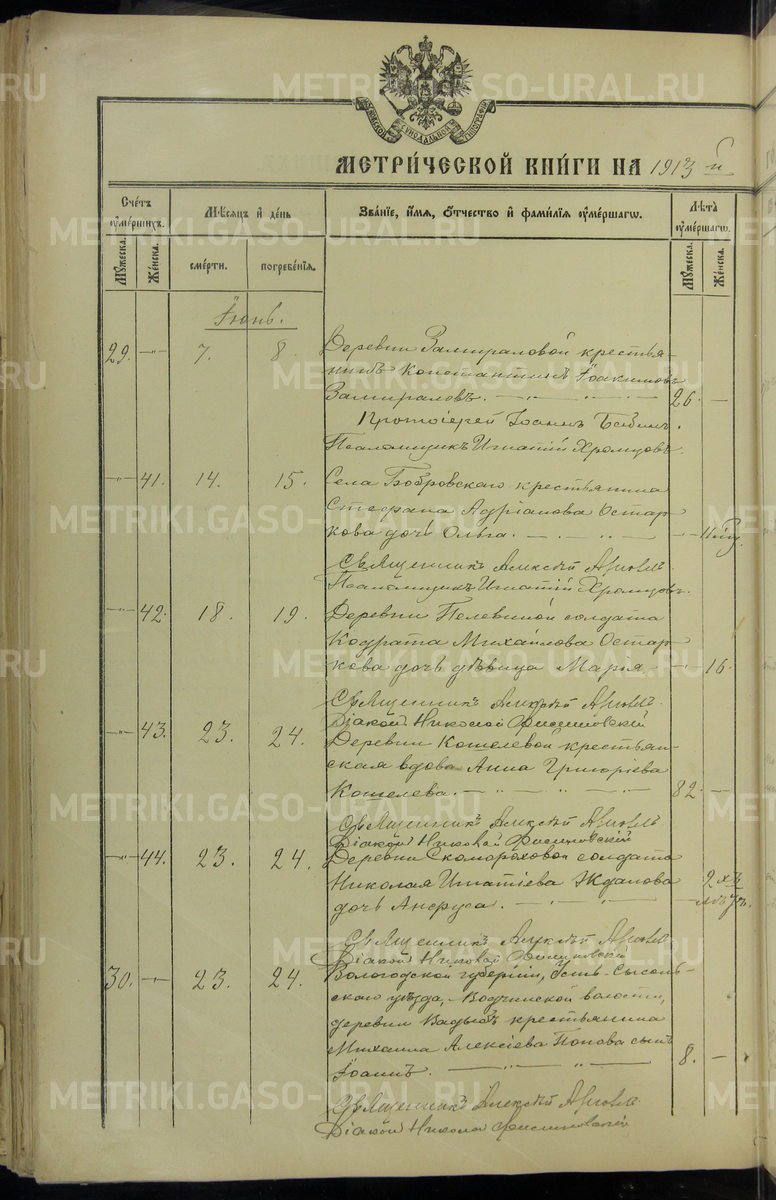 МЕТРИЧЕСКОЙ КНИГИ НА 1913 й
Счетъ оумершихъ.
Мужеска.
Женска.
Мѣсяцъ и день
смерти.
погребенія.
Званіе, имя, отчество и фамилія оумершаго.
Лѣта оумершаго.
Мужеска.
Женска.
Іюнь.
29. — 7. 8. Деревни Замираловой крестья-
нинъ Константинъ Іоакимовъ
Замираловъ. 26. —
Протоіерей Іоаннъ
Псаломщикъ Игнатій Хромцовъ.
— 41. 14. 15. Села Бобровскаго крестьянина
Стефана Адріанова Остар
кова дочь Ольга. —
Священникъ Алексѣй
Псаломщикъ Игнатій Хромцовъ.
— 42. 18. 19. Деревни Пелевиной солдата
Кодрата Михайлова Остар
кова дочь дѣвица Марія — 16.
Священникъ Алексѣй
Діаконъ Николай
— 43. 23. 24. Деревни Кошелевой крестьян-
ская вдова Анна Григоріева
Кошелева. 82. —
Священникъ Алексѣй
Діаконъ Николай
— 44. 23. 24. Деревни Скомороховой солдата
Николая Игнатіева Жданова
дочь Анфуса. — 2 хъ
Священникъ Алексѣй
Діаконъ Николай
30. — 23. 24. Вологодской губерніи, Усть-Сысоль-
скаго уѣзда, Вотчинской волости,
деревни крестьянина
Михаила Алексіева Попова сынъ
Іоаннъ. 8. —
Священникъ Алексѣй
Діаконъ Николай
METRIKI.GASO-URAL.RU